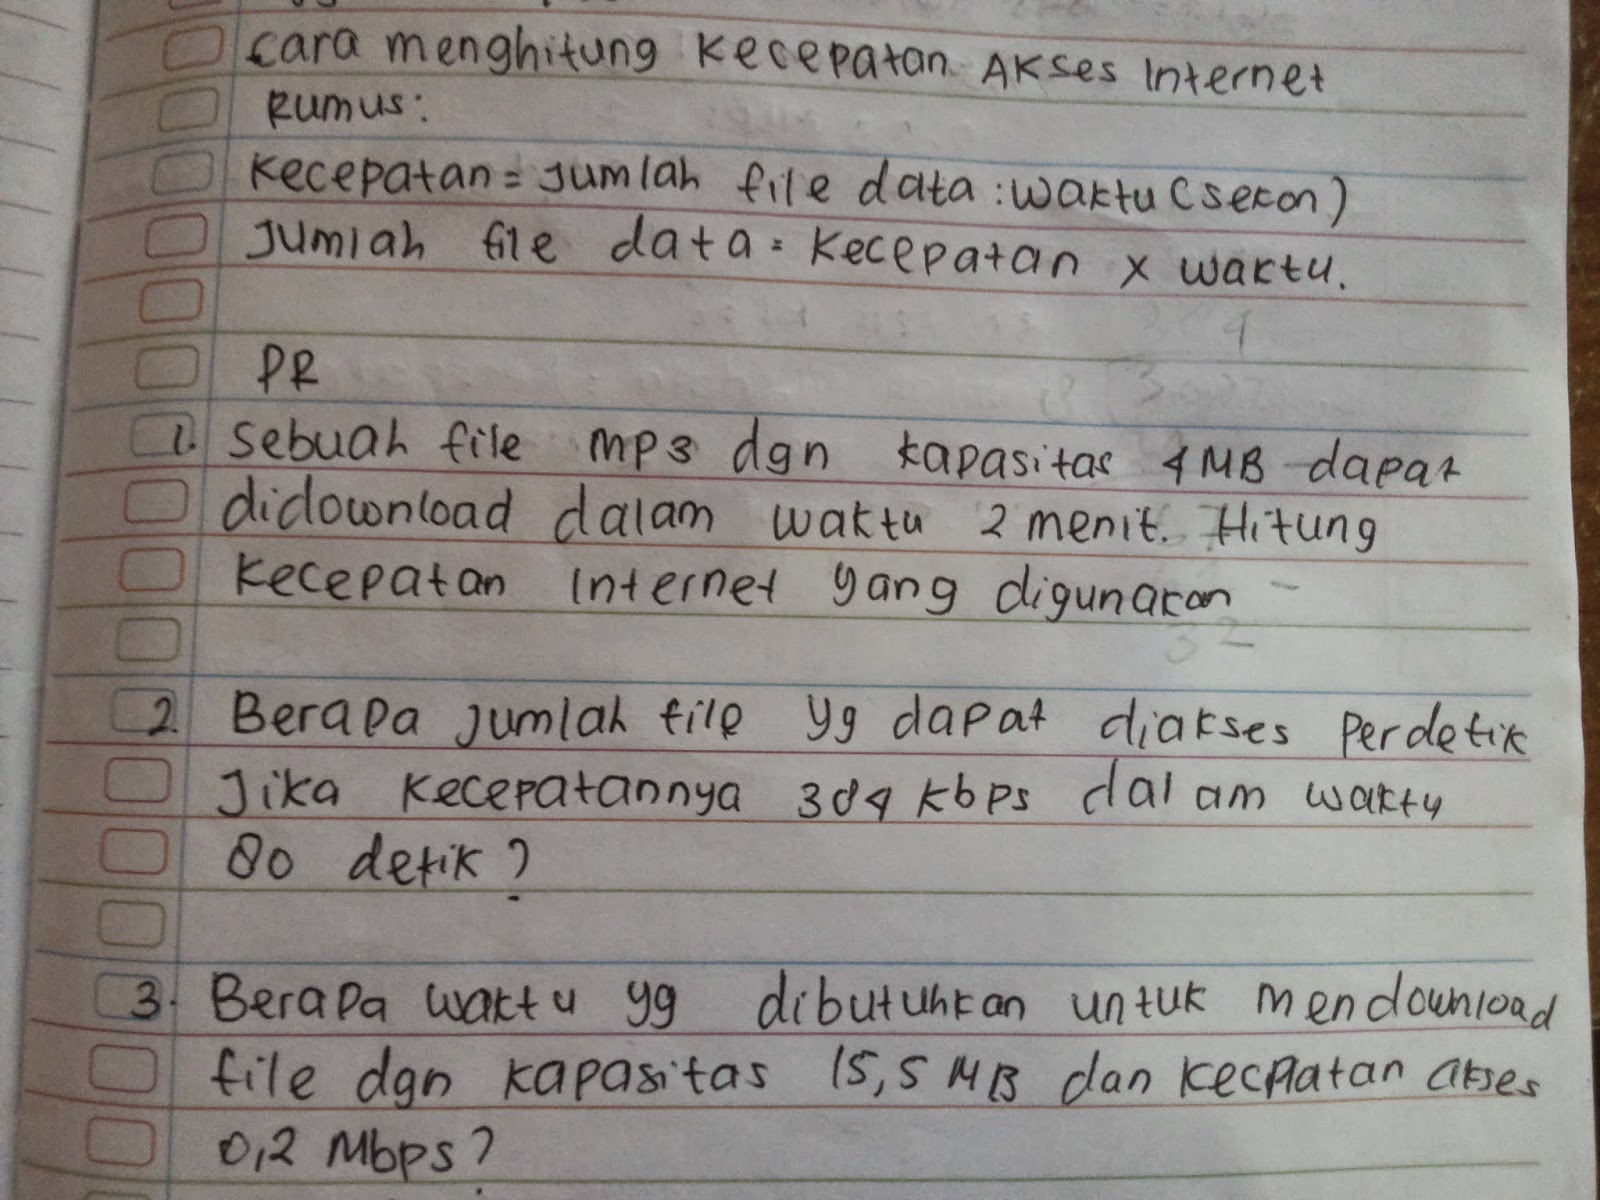 cara menghitung Kecepatan AKses Internet
Rumus:
Kecepatan = Jumlah file data : waktu (sekon)
Jumlah file data = Kecepatan x waktu.
PR
1. Sebuah file mp3 dgn kapasitas 4 MB dapat
didownload dalam waktu 2 menit. Hitung
Kecepatan Internet yang digunakan
2. Berapa jumlah file yg dapat diakses perdetik
Jika Kecepatannya 384 kbps dalam waktu
80 detik?
3. Berapa waktu yg dibutuhkan untuk mendownload
file dgn kapasitas 15,5 MB dan Kecpatan akses
0,2 Mbps?